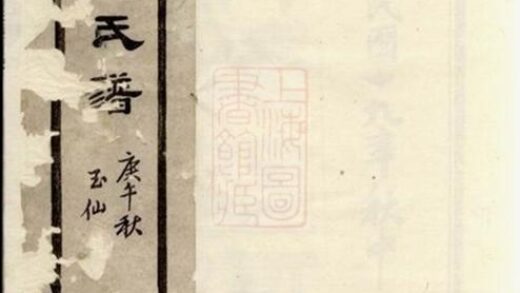 民國十九年
上海圖
書館藏
氏譜
庚午秋
玉仙